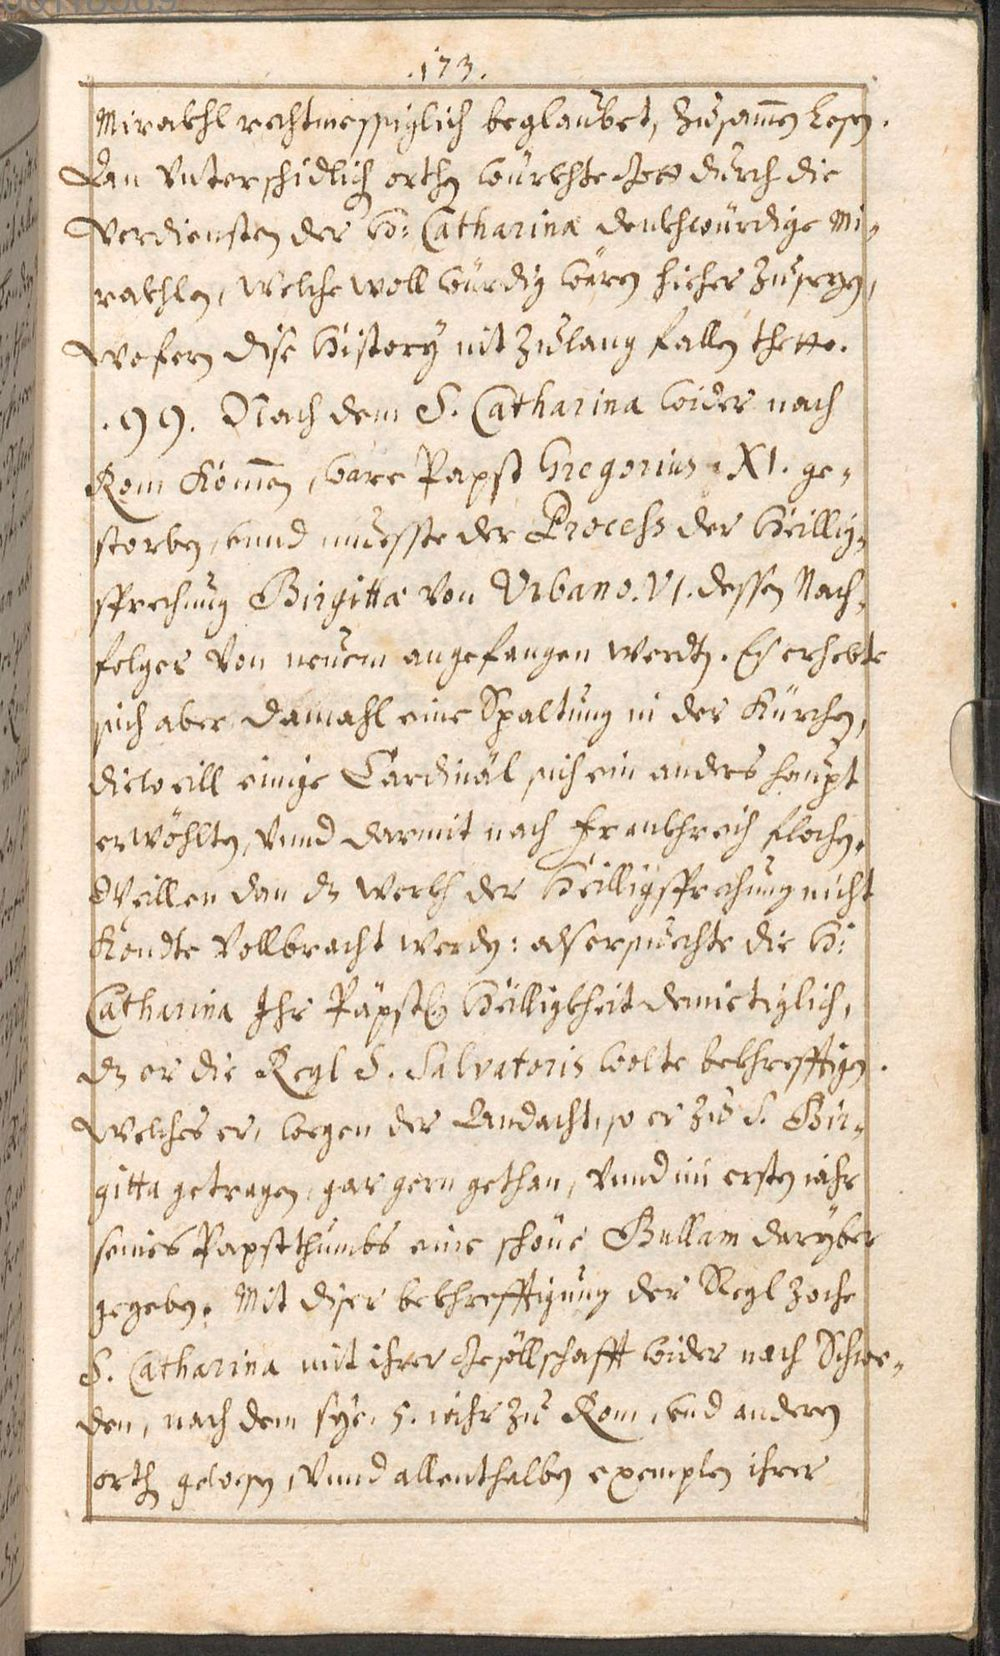 .173.
Mirakhl rechtmessiglich beglaubet, zusam̄en lesen.
Dan vnterschidlich orthen würkhte Gott durch die
Verdiensten der H: Catharinæ denkhwürdige Mi-
rakhlen, welche woll würdig wären hieher zusezen,
wofern dise History nit zu lang fallen thette.
.99. Nach dem S. Catharina wider nach
Rom kom̄en, ware Papst Gregorius .XI. ge-
storben, vnnd muesste der Process der Heillig-
sprechung Birgittæ von Urbano. VI. dessen Nach-
folger von neuem angefangen werdten. Es erhebte
sich aber damahl eine Spaltung in der Kürchen,
dieweill einige Cardinäl sich ein anders haupt
erwöhlten, vnnd darmit nach Frankhreich flochen.
Weillen dan dz werkh der Heilligsprechung nicht
kondte vollbracht werden: als ersuechte die H:
Catharina Ihr Päpstl. Heilligkheit demietiglich,
dz er die Regl S. Salvatoris wolte bekhrefftigen.
welches er, wegen der Andacht, so er zu S. Bir-
gitta getragen, gar gern gethan, vnnd im ersten iahr
seines Papstthumbs eine schöne Bullam daryber
gegeben. Mit diser bekhrefftigung der Regl zoche
S. Catharina mit ihrer Gesöllschafft wider nach Schwe-
den, nach dem sye. 5. iahr zu Rom, vnd anderen
orthen gewesen, vnnd allenthalben exemplen ihrer